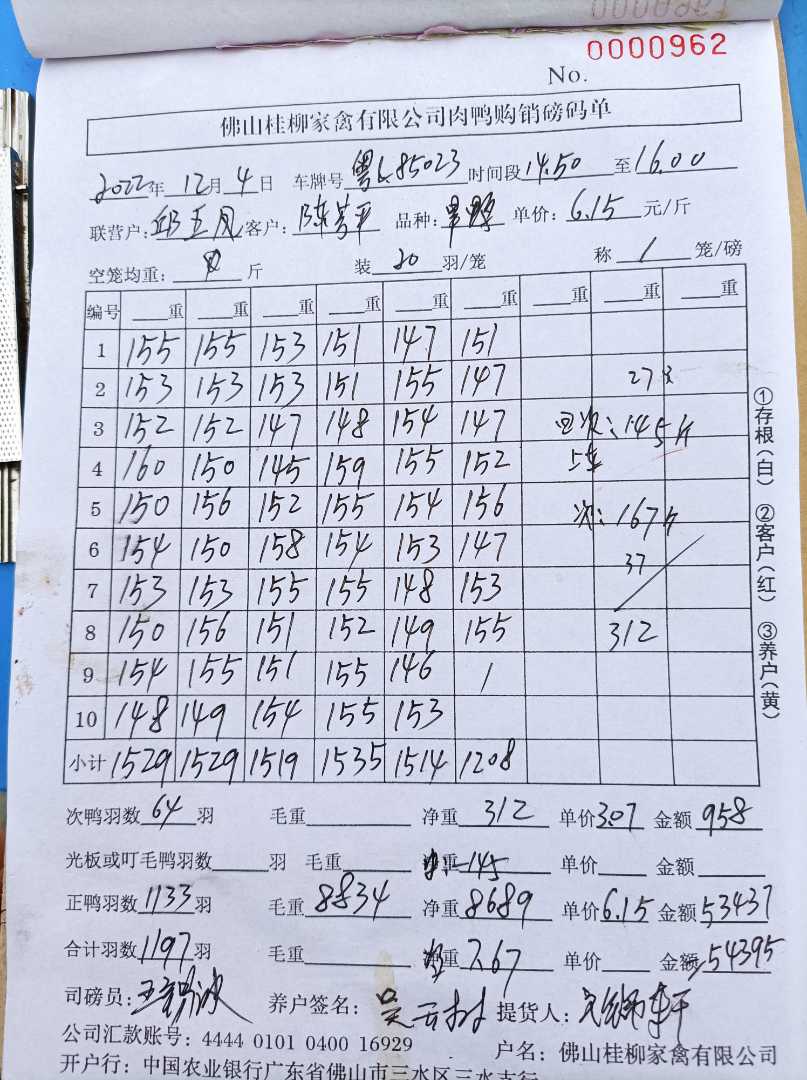 0000962
No.
佛山桂柳家禽有限公司肉鸭购销磅码单
2022年 12月 4日 车牌号 粤L85023 时间段 14:50 至 16:00
联营户: 邱玉凤 客户: 陈芳平 品种: 单价: 6.15 元/斤
空笼均重: 斤 装 20 羽/笼 称 1 笼/磅
编号 重 重 重 重 重 重 重 重 重
1 155 155 153 151 147 151
2 153 153 153 151 155 147 27
3 152 152 147 148 154 147 回次: 145斤
4 160 150 145 159 155 152 上车
5 150 156 152 155 154 156 次: 167斤
6 154 150 158 154 153 147 37
7 153 153 155 155 148 153
8 150 156 151 152 149 155 312
9 154 155 151 155 146 /
10 148 149 154 155 153
小计 1529 1529 1519 1535 1514 1208
①存根(白) ②客户(红) ③养户(黄)
次鸭羽数 64 羽 毛重 净重 312 单价 3.07 金额 958
光板或叮毛鸭羽数 羽 毛重 -145 单价 金额
正鸭羽数 1133 羽 毛重 8834 净重 8689 单价 6.15 金额 53437
合计羽数 1197 羽 毛重 重 7.67 单价 金额 54395
司磅员: 养户签名: 提货人:
公司汇款账号: 4444 0101 0400 16929 户名: 佛山桂柳家禽有限公司
开户行: 中国农业银行广东省佛山市三水区三水支行